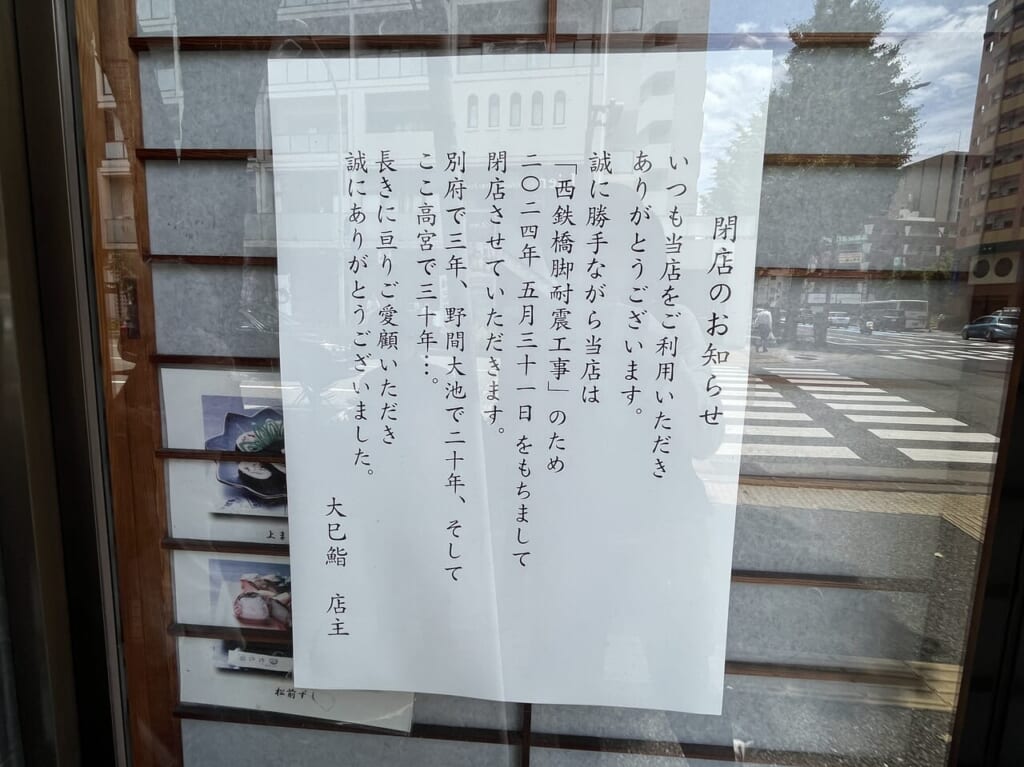 閉店のお知らせ
いつも当店をご利用いただき
ありがとうございます。
誠に勝手ながら当店は
「西鉄橋脚耐震工事」のため
二〇二四年五月三十一日をもちまして
閉店させていただきます。
別府で三年、野間大池で二十年、そして
ここ高宮で三十年…。
長きに亘りご愛顧いただき
誠にありがとうございました。
大巳鮨 店主
上ま
松前ずし